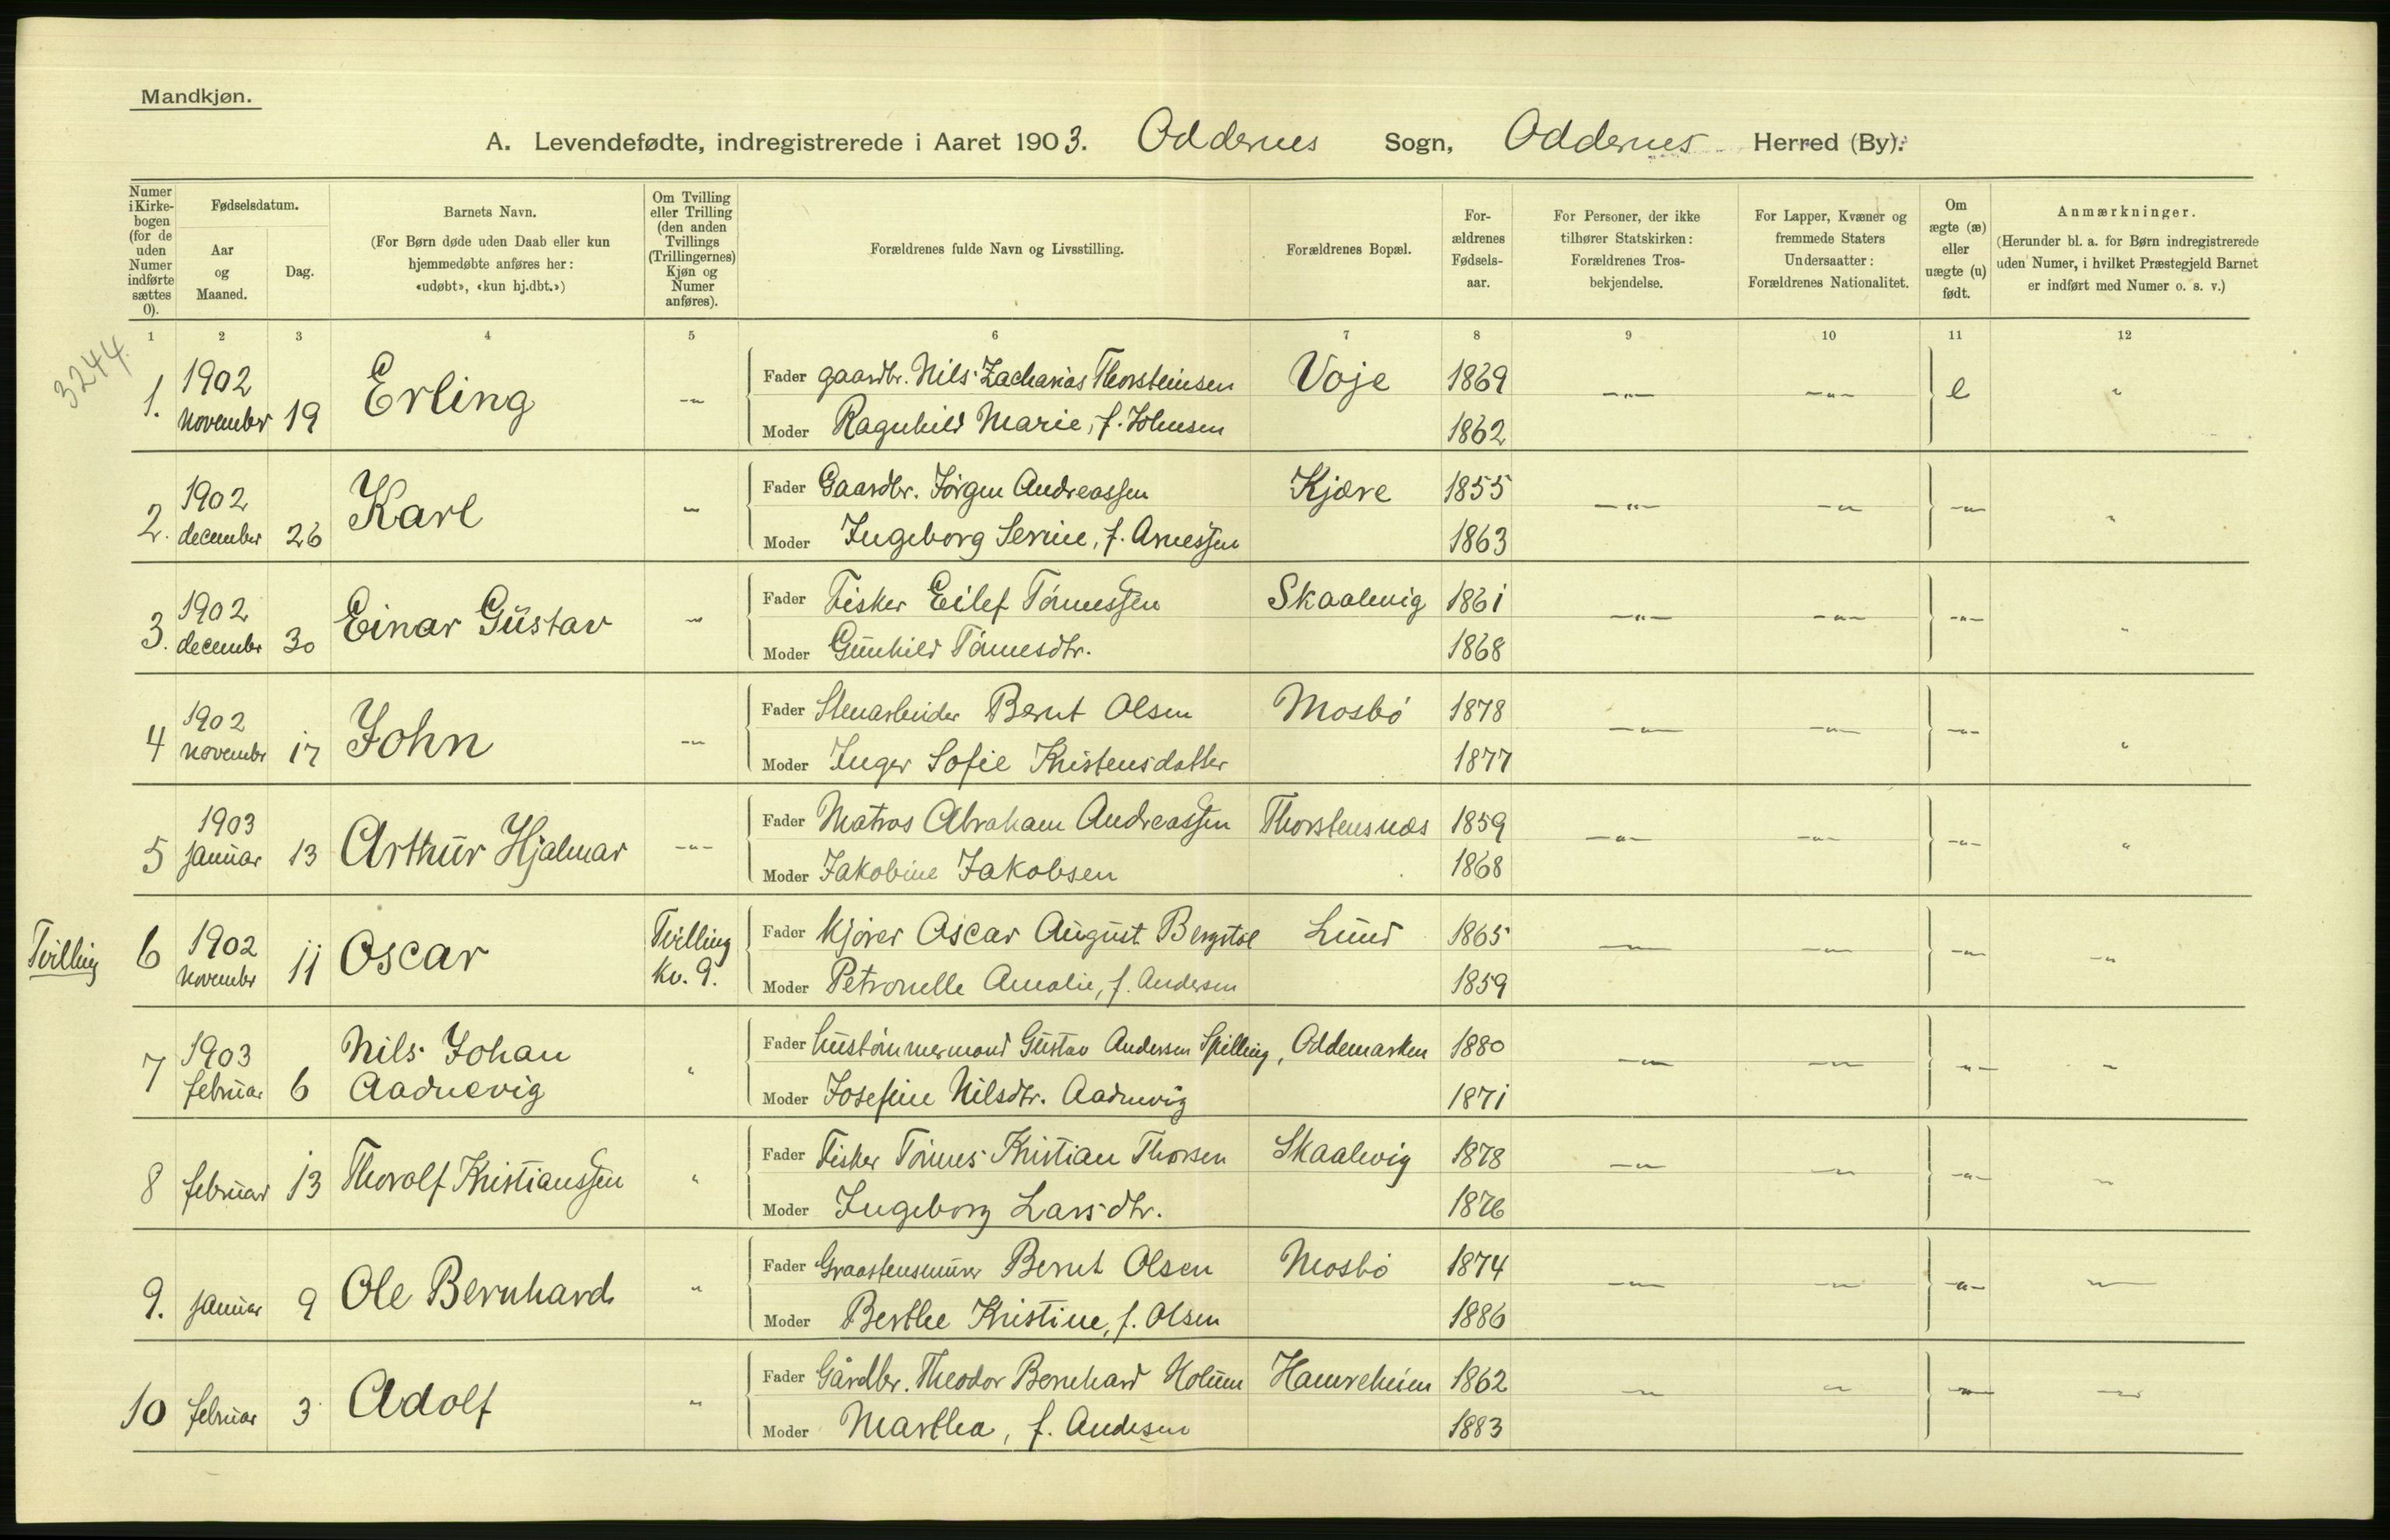 Mandkjøn.
A. Levendefødte, indregistrerede i Aaret 1903. Oddernes Sogn, Oddernes Herred (By).
Numer i Kirkebogen (for de uden Numer indførte sættes 0).
Fødselsdatum.
Aar og Maaned.
Dag.
Barnets Navn.
(For Børn døde uden Daab eller kun hjemmedøbte anføres her: «udøbt», «kun hj.dbt.»)
Om Tvilling eller Trilling (den anden Tvillings (Trillingernes) Kjøn og Numer anføres).
Forældrenes fulde Navn og Livsstilling.
Forældrenes Bopæl.
For-ældrenes Fødsels-aar.
For Personer, der ikke tilhører Statskirken: Forældrenes Tros-bekjendelse.
For Lapper, Kvæner og fremmede Staters Undersaatter: Forældrenes Nationalitet.
Om ægte (æ) eller uægte (u) født.
Anmærkninger.
(Herunder bl. a. for Børn indregistrerede uden Numer, i hvilket Præstegjeld Barnet er indført med Numer o. s. v.)
1 2 3 4 5 6 7 8 9 10 11 12
3244
1. 1902 november 19 Erling -"- Fader gaardbr. Nils Zacharias Thorsteinsen Voje 1869 -"- -"- e "
Moder Ragnhild Marie, f. Johnsen 1862
2. 1902 december 26 Karl -"- Fader Gaardbr. Jørgen Andreassen Kjære 1855 -"- -"- -"- "
Moder Ingeborg Serine, f. Arnessen 1863
3. 1902 decembr 30 Einar Gustav -"- Fader Fisker Eilef Tønnessen Skaalevig 1861 -"- -"- -"- "
Moder Gunhild Tønnesdtr. 1868
4 1902 novembr 17 John -"- Fader Stenarbeider Bernt Olsen Mosbø 1878 -"- -"- -"- "
Moder Inger Sofie Kristensdatter 1877
5 1903 januar 13 Arthur Hjalmar -"- Fader Matros Abraham Andreassen Thorstensnæs 1859 -"- -"- -"- "
Moder Jakobine Jakobsen 1868
Tvilling 6 1902 novembr 11 Oscar Tvilling Kv. 9. Fader Kjører Oscar August Bergstøl Lund 1865 -"- -"- -"- -"
Moder Petronelle Amalie, f. Andersen 1859
7 1903 februar 6 Nils Johan Aadnevig " Fader hustømmermand Gustav Andersen Spilling, Oddemarken 1880 -"- -"- -"- "
Moder Josefine Nilsdtr. Aadnevig 1871
8 februar 13 Thorolf Kristianssen " Fader Fisker Tønnes Kristian Thorsen Skaalevig 1878 -"- -"- -"- "
Moder Ingeborg Larsdtr. 1876
9. januar 9 Ole Bernhard " Fader Graastensmurer Bernt Olsen Mosbø 1874 -"- -"- -"- -"-
Moder Berthe Kristine, f. Olsen 1886
10 februar 3 Adolf " Fader Gårdbr. Theodor Bernhard Holum Hamreheien 1862 -"- " -"- -"-
Moder Marthea, f. Andesen 1883